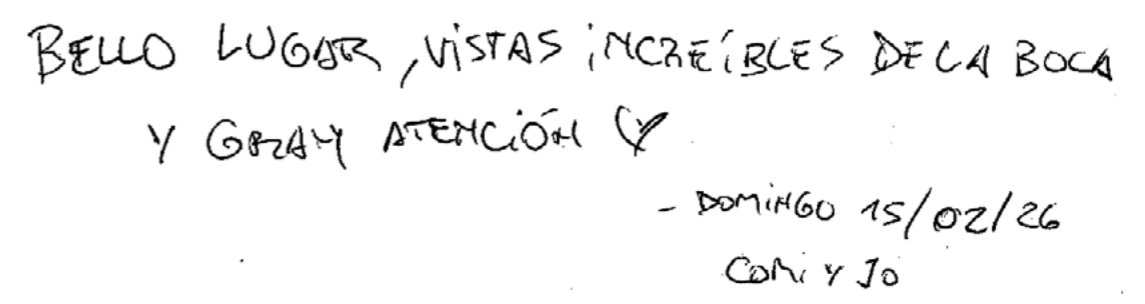 BELLO LUGAR, ViSTAS iNCREÍBLES DE LA BOCA
Y GRAN ATENCiÓN ♡
- DOMiNGO 15/02/26
COMi Y JO